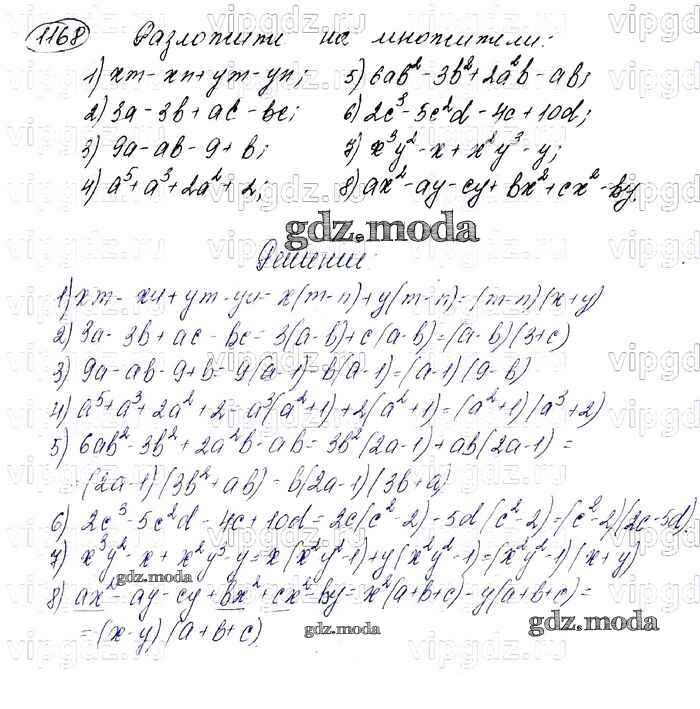 1168 Разложить на множители:
1) xm - xn + ym - yn; 5) 6ab² - 3b² + 2a²b - ab;
2) 3a - 3b + ac - bc; 6) 2c³ - 5c²d - 4c + 10d;
3) 9a - ab - 9 + b; 7) x³y² - x + x²y³ - y;
4) a⁵ + a³ + 2a² + 2; 8) ax² - ay - cy + bx² + cx² - by.
gdz.moda
Решение.
1) xm - xn + ym - yn = x(m-n) + y(m-n) = (m-n)(x+y)
2) 3a - 3b + ac - bc = 3(a-b) + c(a-b) = (a-b)(3+c)
3) 9a - ab - 9 + b = 9(a-1) - b(a-1) = (a-1)(9-b)
4) a⁵ + a³ + 2a² + 2 = a³(a²+1) + 2(a²+1) = (a²+1)(a³+2)
5) 6ab² - 3b² + 2a²b - ab = 3b²(2a-1) + ab(2a-1) =
= (2a-1)(3b²+ab) = b(2a-1)(3b+a)
6) 2c³ - 5c²d - 4c + 10d = 2c(c²-2) - 5d(c²-2) = (c²-2)(2c-5d)
7) x³y² - x + x²y³ - y = x(x²y²-1) + y(x²y²-1) = (x²y²-1)(x+y)
gdz.moda
8) ax² - ay - cy + bx² + cx² - by = x²(a+b+c) - y(a+b+c) =
= (x-y)(a+b+c)
gdz.moda
gdz.moda